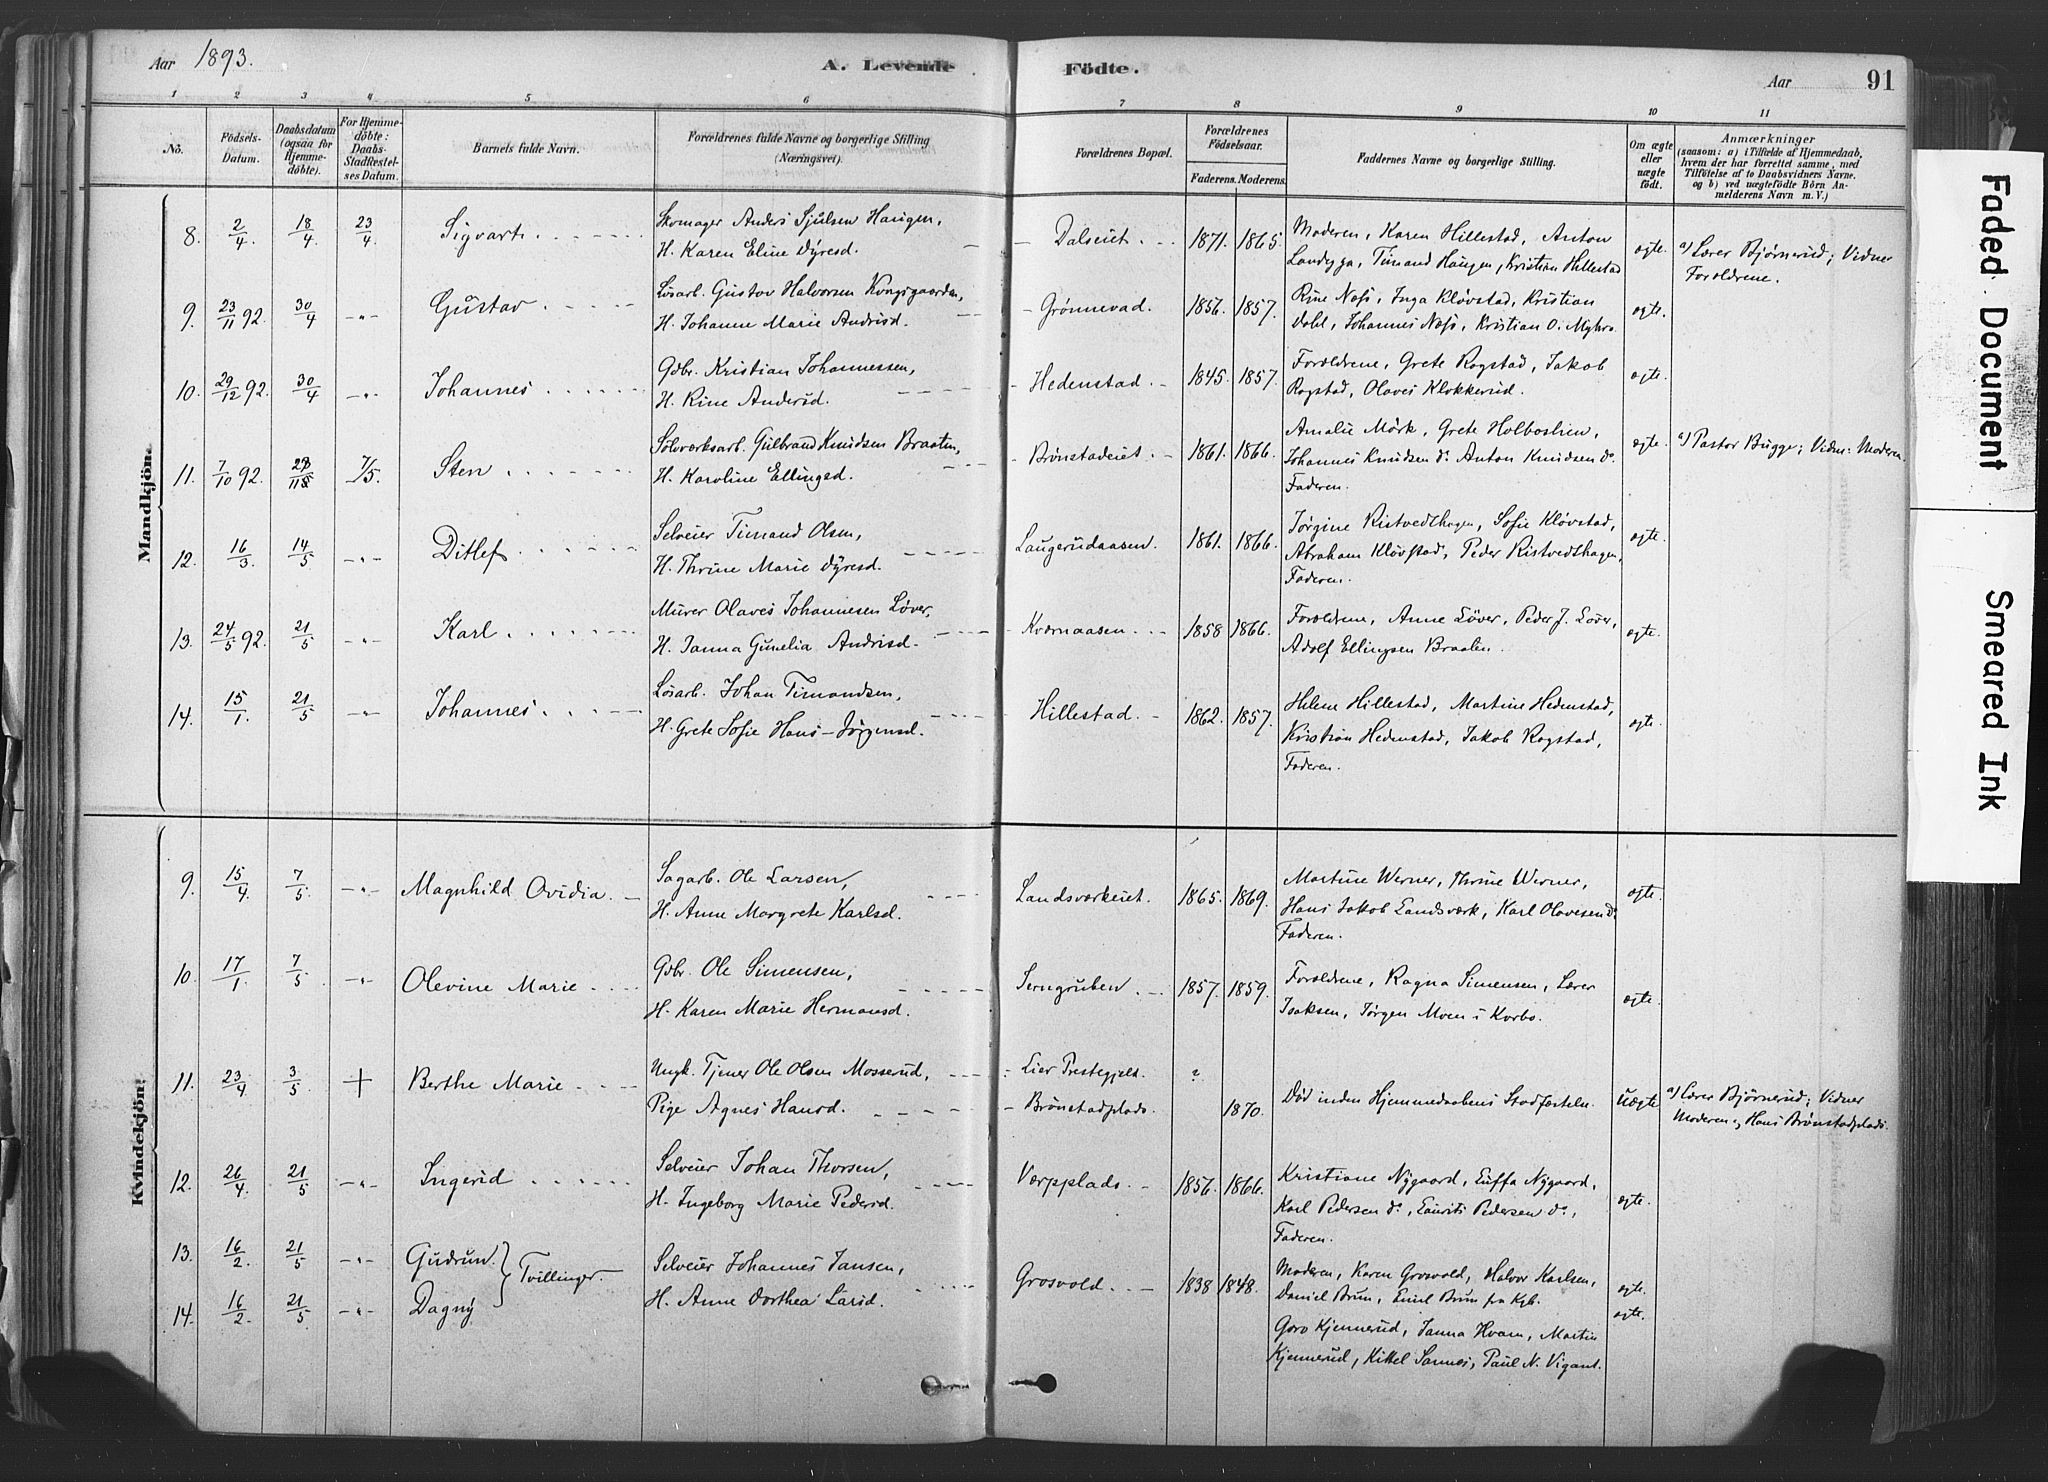 Aar 1893. A. Levende Födte. Aar 91
1 2 3 4 5 6 7 8 9 10 11
No.
Födsels-Datum.
Daabsdatum (ogsaa for Hjemmedöbte).
For Hjemmedöbte: Daabs-Stadfæstelses Datum.
Barnets fulde Navn.
Forældrenes fulde Navne og borgerlige Stilling (Næringsvei).
Forældrenes Bopæl.
Forældrenes Födselsaar.
Faderens. Moderens.
Faddernes Navne og borgerlige Stilling.
Om ægte eller uægte födt.
Anmærkninger (saasom: a) i Tilfælde af Hjemmedaab, hvem der har forrettet samme, med Tilföielse af to Daabsvidners Navne. og b) ved uægtefödte Börn Anmelderens Navn m. V.)
Mandkjön.
8. 2/4 18/4 23/4 Sigvart. Skomager Anders Sjulsen Haugen, Dalseiet. 1871. 1865. Moderen, Karen Hillestad, Anton ægte. a) Lærer Bjørnerud; Vidner
H. Karen Eline Dyresd. Landyga, Timand Haugen, Kristian Hillestad Forældrene.
9. 23/11 92. 30/4 -"- Gustav Løsarb. Gustav Halvorsen Kongsgaarden, Grønnevad. 1856. 1857. Rine Næss, Inga Kløvstad, Kristian ægte.
H. Johanne Marie Andrisd. Dahl, Johannes Næss, Kristian O. Myhro
10. 29/12 92. 30/4 -"- Johannes Gdbr. Kristian Johannessen, Hedenstad. 1845. 1857. Forældrene, Grete Rogstad, Jakob ægte.
H. Rine Andersd. Rogstad, Olaves Klokkerud.
11. 7/10 92. 7/5. Sten Sølvværksarb. Gulbrand Knudsen Braaten, Brønstadeiet. 1861. 1866. Amalie Mörk, Grete Holboslien, ægte. a) Pastor Bugge; Vidn: Moderen.
H. Karoline Ellingsd. Johannes Knudsen do Anton Knudsen do
Faderen.
12. 16/3 14/5 -"- Ditlef Selveier Timand Olsen, Laugerudaasen. 1861. 1866. Jørgine Ristvedthagen, Sofie Kløvstad, ægte.
H. Thrine Marie Dyresd. Abraham Kløvstad, Peder Ristvedthagen,
Faderen.
13. 24/5 92. 21/5 -"- Karl Murer Olaves Johannesen Løver, Kværnaasen. 1858 1866. Forældrene, Anne Løver, Peder J. Løver, ægte.
H. Janna Gunelia Andrisd. Adolf Ellingsen Braaten.
14. 15/1. 21/5 -"- Johannes. Løsarb. Johan Timandsen, Hillestad. 1862. 1857. Helene Hillestad, Martine Hedenstad, ægte.
H. Grete Sofie Hans-Jørgensd. Kristian Hedenstad, Jakob Rogstad,
Faderen.
Kvindekjön.
9. 15/4. 7/5. -"- Magnhild Ovidia. Sagarb. Ole Larsen, Landsværkeiet. 1865. 1869. Martine Werner, Thrine Werner, ægte.
H. Anne Margrete Karlsd. Hans Jakob Landsværk, Karl Olavesen do
Faderen.
10. 17/1. 7/5 -"- Olevine Marie Gdbr. Ole Simensen, Jerngruben. 1857. 1859. Forældrene, Ragna Simensen, Lærer ægte.
H. Karen Marie Hermansd. Isaksen, Jørgen Moen i Korbo.
11. 23/4 3/5 + Berthe Marie Ungk. Tjener Ole Olsen Mosserud, Lier Prestegjeld. ?
Pige Agnes Hansd. Brönstadplads. 1870. Død inden Hjemmedaabens Stadfæsteln. uægte a) Lærer Bjørnerud; Vidner
Moderen og Hans Brønstadplads.
12. 26/4. 21/5 -"- Ingerid Selveier Johan Thorsen, Værpplads. 1856. 1866. Kristiane Nygaard, Luffa Nygaard, ægte.
H. Ingeborg Marie Pedersd. Karl Pedersen do, Laurits Pedersen do,
Faderen.
13. 16/2. 21/5 -"- Gudrun Tvillinger. Selveier Johannes Jansen, Grosvold. 1838 1848. Moderen, Karen Grosvold, Halvor Karlsen, ægte.
H. Anne Dorthea Larsd. Daniel Brun, Emil Brun fra Kgb.
14. 16/2. 21/5 -"- Dagny ægte.
Goro Kjennerud, Janna Hvam, Martin
Kjennerud, Kittel Sannes, Paul N. Vigant.
Faded Document
Smeared Ink